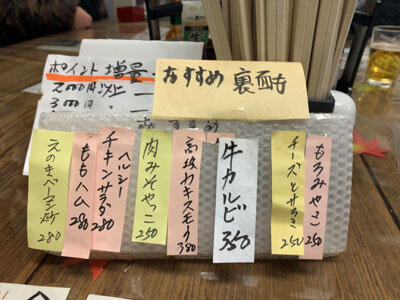 ポイント増量
2000円以上
3000円 〃
おすすめ 裏面も
おすすめ
えのきベーコン炒 280
ももハム 280
ヘルシー
チキンサラダ 280
肉みそやっこ 250
カキスモーク 380
牛カルビ 350
チーズとサラミ 250
もろみやっこ 250